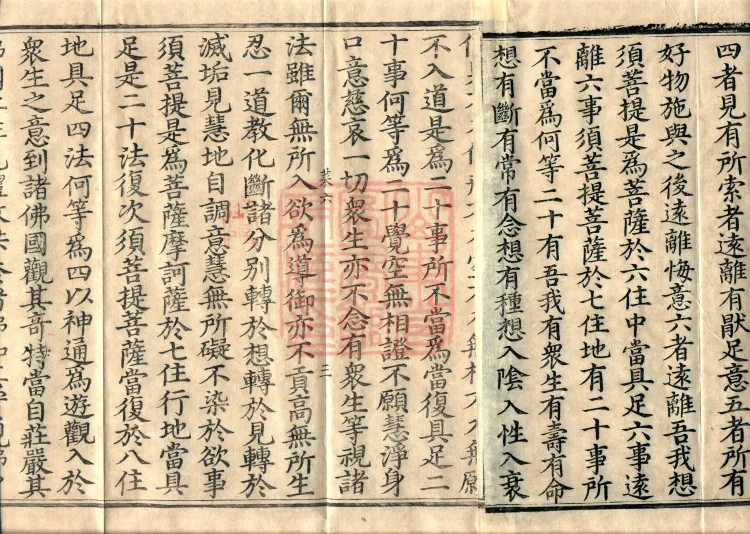 四者見有所索者遠離有猒足意五者所有
好物施與之後遠離悔意六者遠離吾我想
須菩提是為菩薩於六住中當具足六事遠
離六事須菩提菩薩於七住地有二十事所
不當為何等二十有吾我有衆生有壽有命
想有斷有常有念想有種想入陰入性入衰
不入道是為二十事所不當為當復具足二
十事何等為二十覺空無相證不願慧淨身
口意慈哀一切衆生亦不念有衆生等視諸
法雖爾無所入欲為導御亦不貢高無所生
菜六
三
忍一道教化斷諸分別轉於想轉於見轉於
滅垢見慧地自調意慧無所礙不染於欲事
須菩提是為菩薩摩訶薩於七住行地當具
足是二十法復次須菩提菩薩當復於八住
地具足四法何等為四以神通為遊觀入於
衆生之意到諸佛國觀其奇特當自莊嚴其